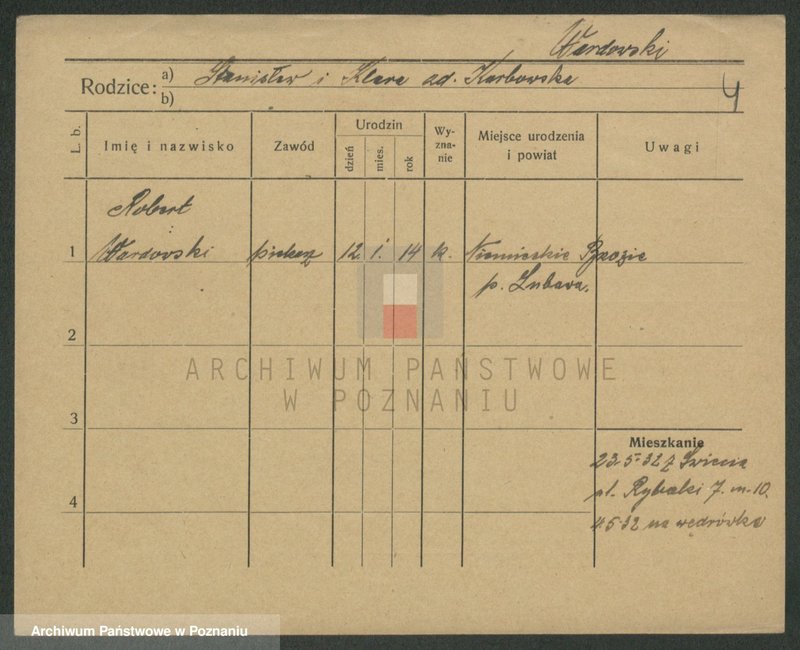 Wardowski
Rodzice: a) Stanisław i Klara ad. Karbowska
b)
4
L. b. Imię i nazwisko Zawód Urodzin dzień mies. rok Wyznanie Miejsce urodzenia i powiat Uwagi
Robert
1 Wardowski piekarz 12. 1. 14 k. Niemieckie Brzozie
p. Lubawa.
2
ARCHIWUM PAŃSTWOWE
W POZNANIU
3
Mieszkanie
23-5-32 z Świecia
pl. Rybaki 7. m-10.
4
4.5.32 na wędrówkę
Archiwum Państwowe w Poznaniu